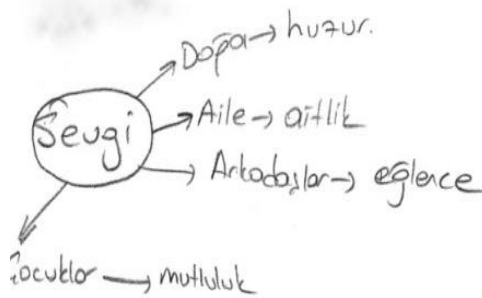 Doğa → huzur.
Sevgi
Aile → aitlik
Arkadaşlar → eğlence
Çocuklar → mutluluk